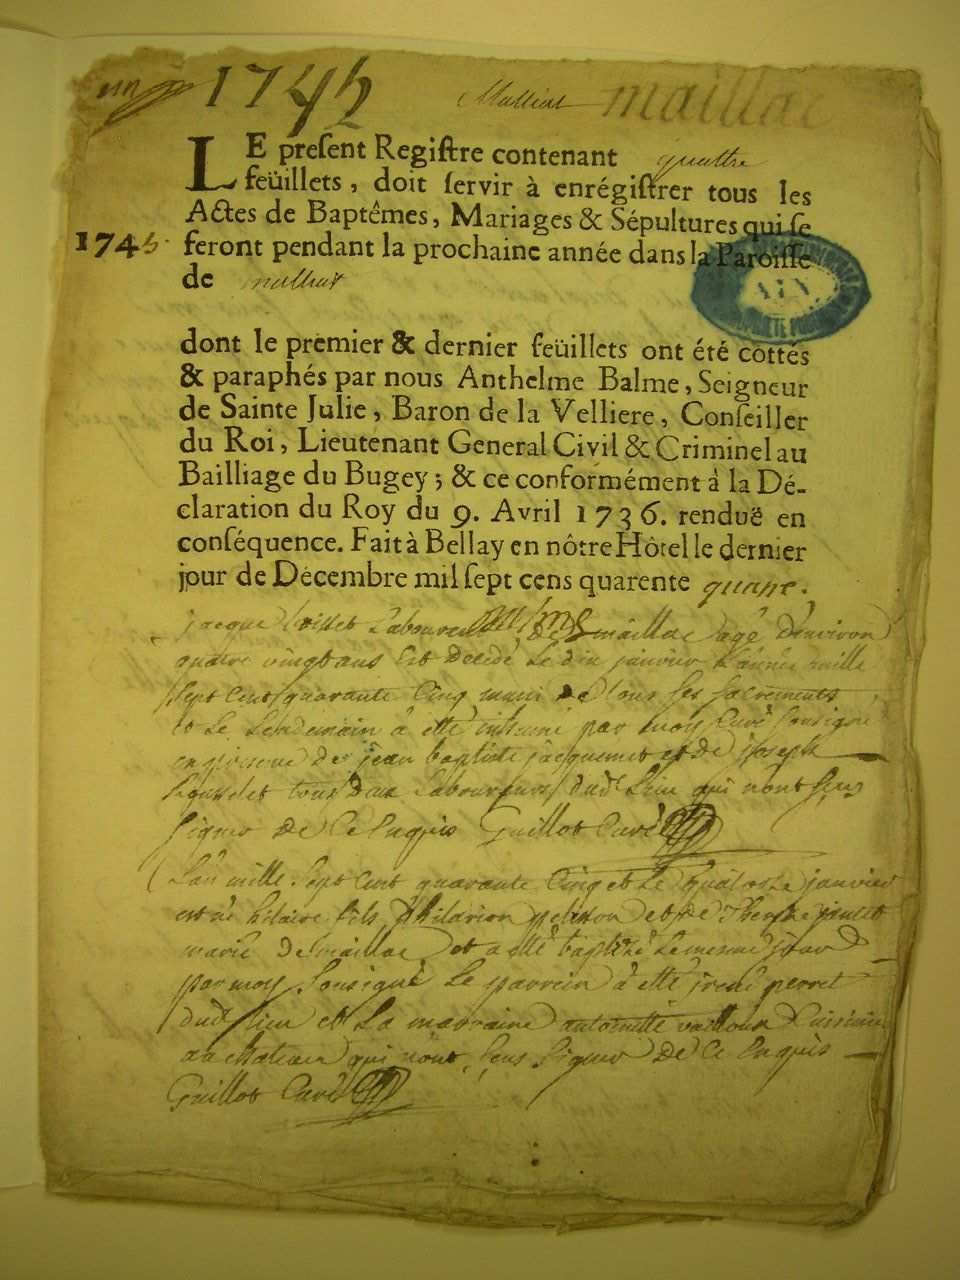 1745 Malliat maillac
LE preſent Regiſtre contenant quattre
feüillets, doit ſervir à enrégiſtrer tous les
Actes de Baptêmes, Mariages & Sépultures qui ſe
1745 feront pendant la prochaine année dans la Paroiſſe
de malliat
AIN
dont le premier & dernier feüillets ont été cottés
& paraphés par nous Anthelme Balme, Seigneur
de Sainte Julie, Baron de la Velliere, Conſeiller
du Roi, Lieutenant General Civil & Criminel au
Bailliage du Bugey; & ce conformément à la Dé-
claration du Roy du 9. Avril 1736. renduë en
conſéquence. Fait à Bellay en nôtre Hôtel le dernier
jour de Décembre mil ſept cens quarente quatre.
jacque Laboureur de maillac agé d'environ
quatre vingt ans est decedé le dix janvier l'année mille
sept cent quarante cinq muni de tous ses sacrements
et le lendemain à etté inhumé par moy curé soussigné
en presence de jean baptiste jacquemet et de joseph
tous deux laboureurs dud lieu qui n'ont sceu
signer de ce enquis Guillot curé
L'an mille sept cent quarante cinq et le quatorze janvier
est né hilaire fils d'hilarion et de Therese
marié de maillac et a etté baptizé le mesme jour
par moy soussigné le parrein à etté perret
dud lieu et la marraine antoinette cuisiniere
au chateau qui n'ont sceu signer de ce enquis
Guillot curé